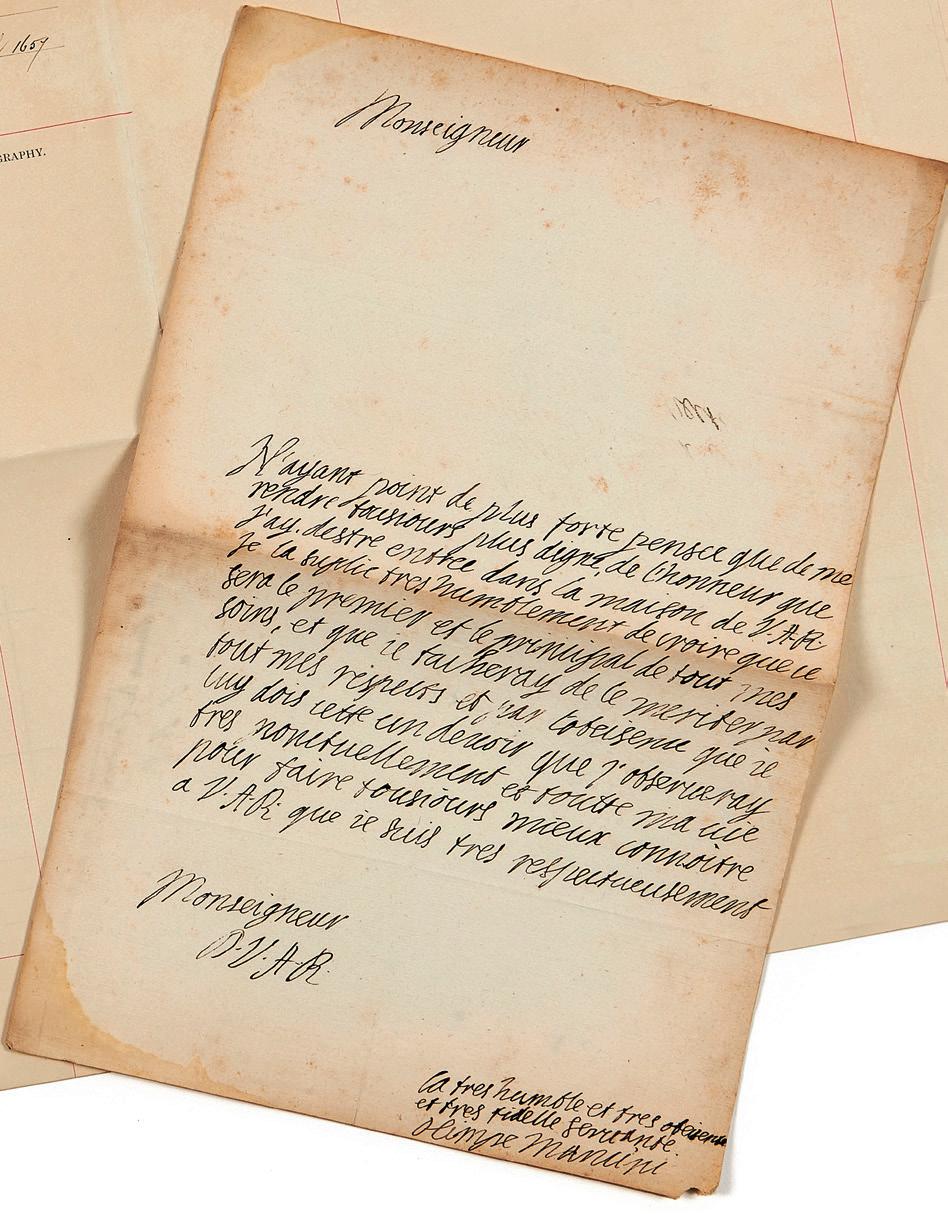 1657
GRAPHY.
Monseigneur
1657
N'ayant point de plus forte pensee que de me
rendre tousiours plus digne de l'honneur que
j'ay destre entree dans la maison de V.A.R.
Je la suplie tres humblement de croire que ce
sera le premier et le principal de tout mes
soins, et que ie tacheray de le meriter par
tout mes respects et par l'obeisence que ie
luy dois cette un devoir que j'observeray
tres ponctuellement et toutte ma vie
pour faire tousiours mieux connoitre
a V.A.R. que ie suis tres respectueusement
Monseigneur
D.V.A.R.
la tres humble et tres obeisente
et tres fidelle servante.
Olimpe Mancini